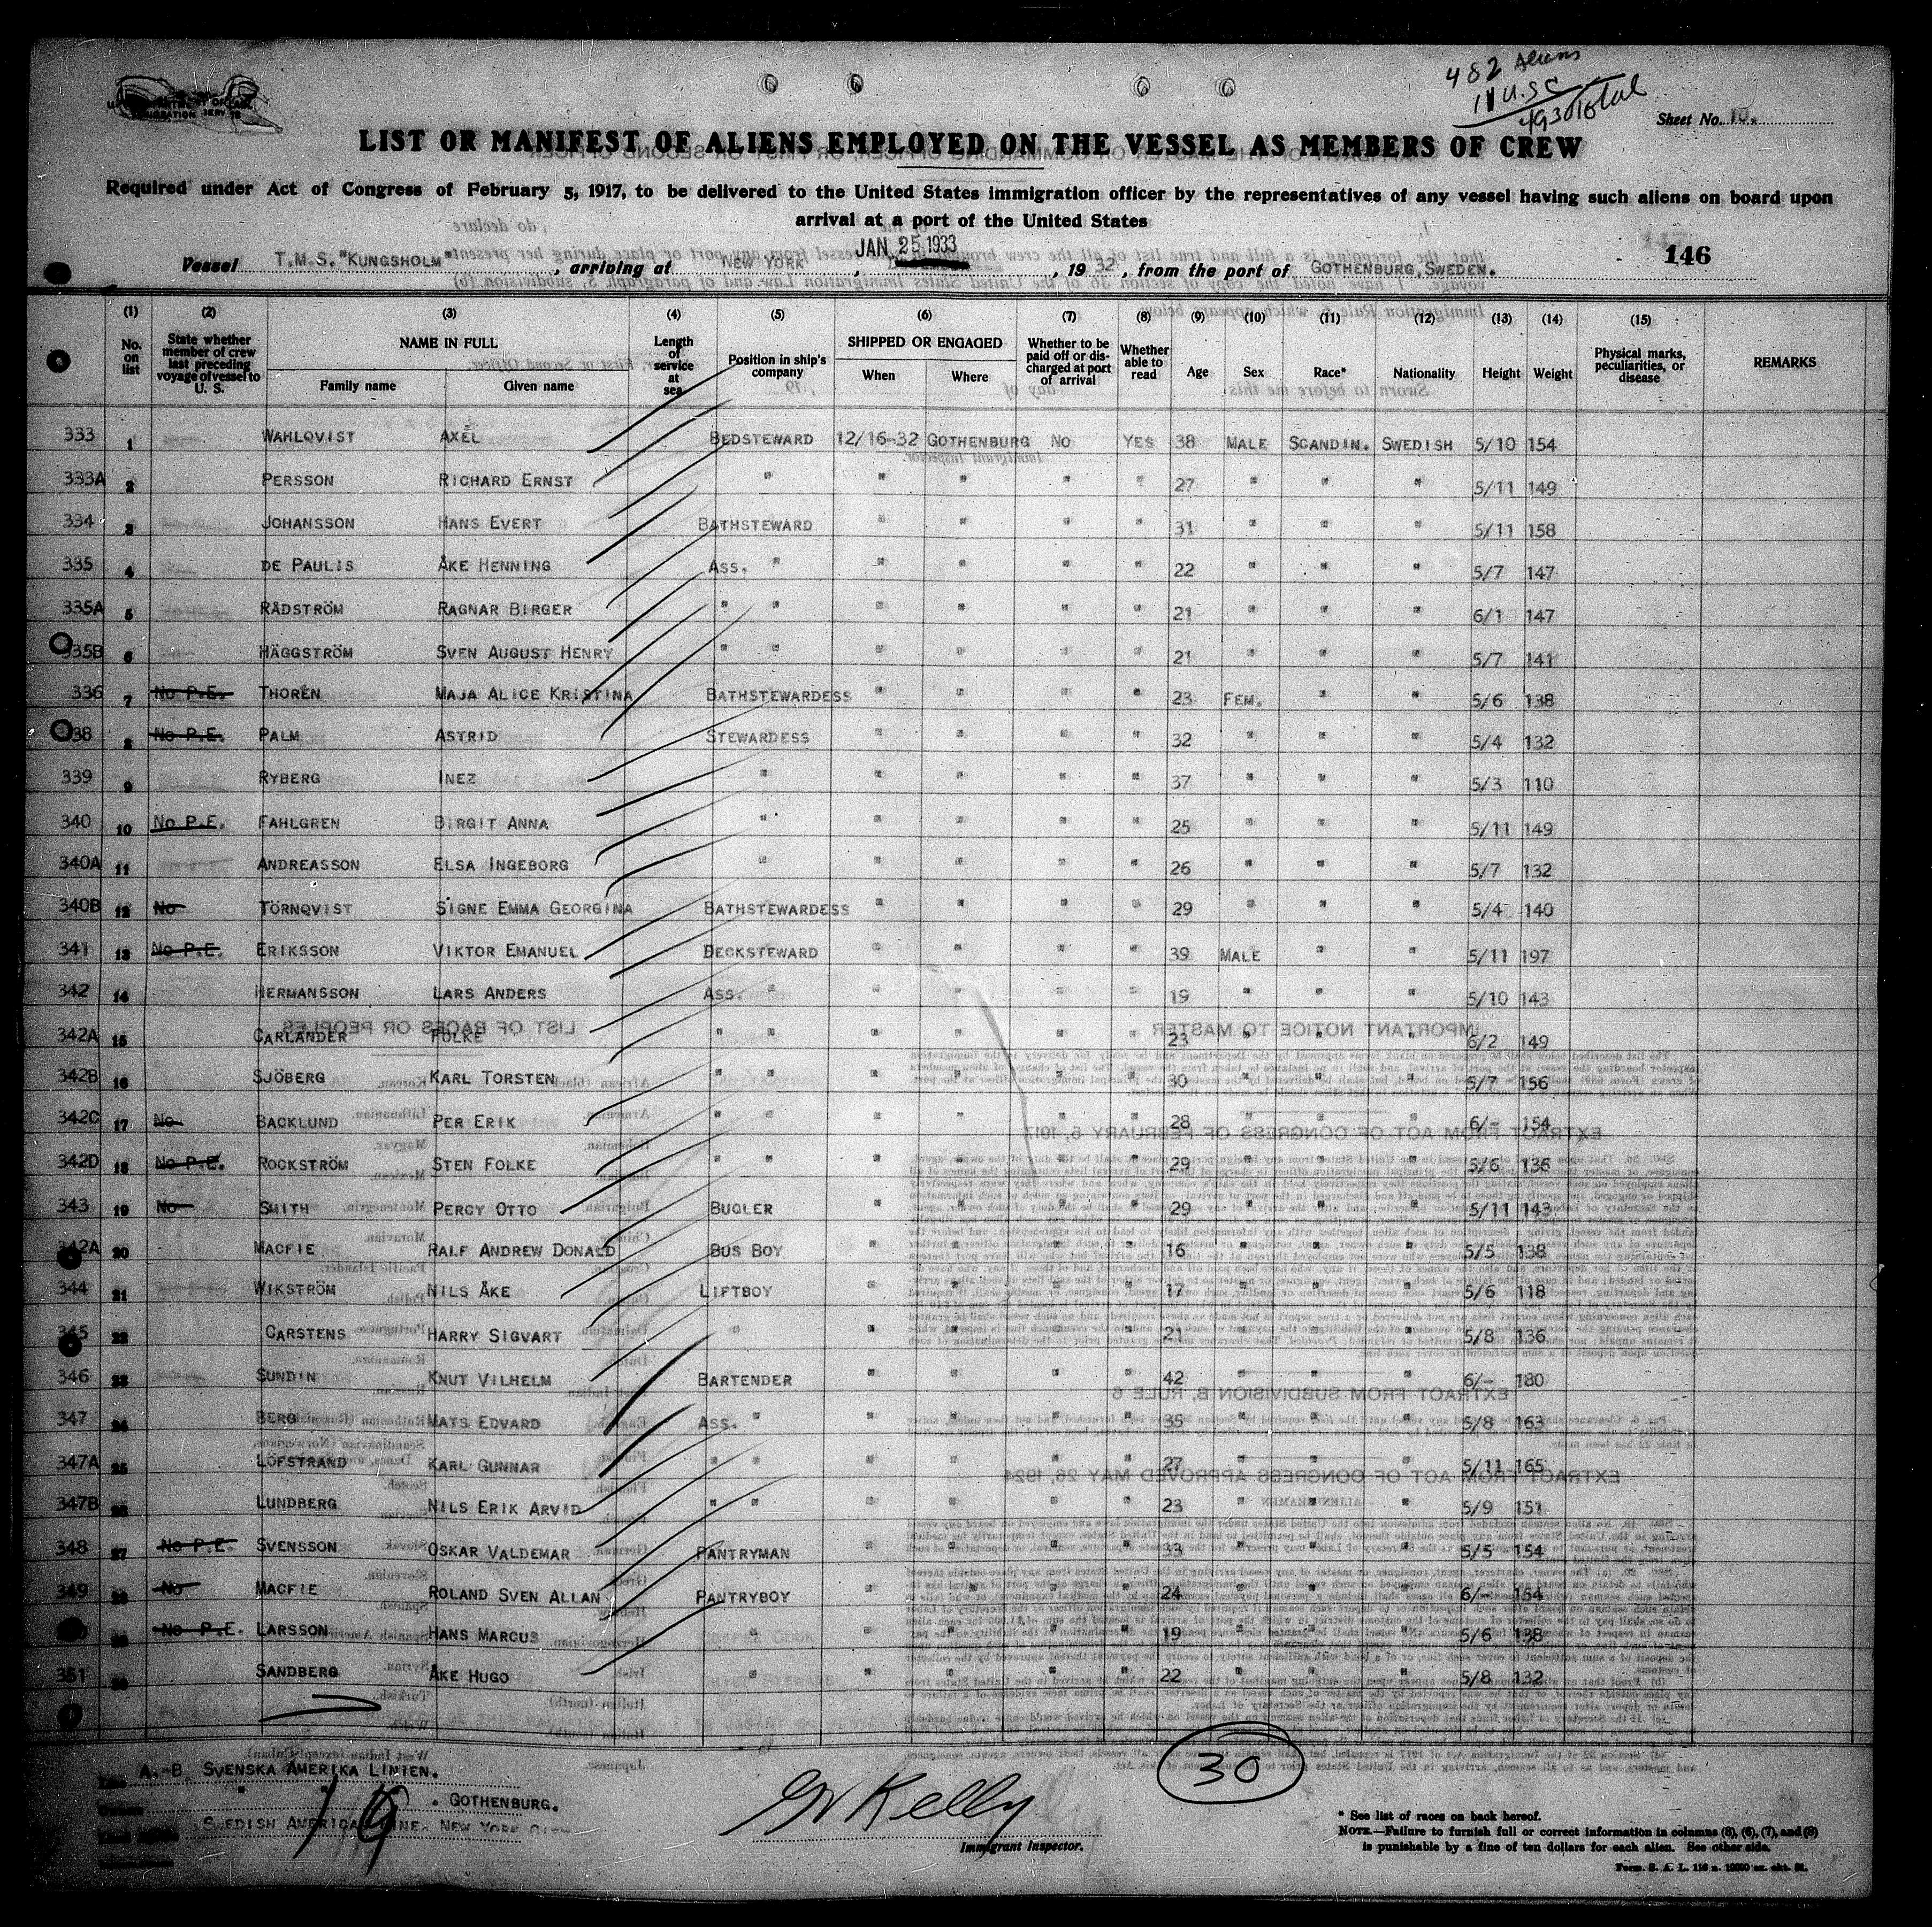 482 Aliens
11 U.S.C
493 Total
Sheet No. 10.
LIST OR MANIFEST OF ALIENS EMPLOYED ON THE VESSEL AS MEMBERS OF CREW
Required under Act of Congress of February 5, 1917, to be delivered to the United States immigration officer by the representatives of any vessel having such aliens on board upon
arrival at a port of the United States
JAN 25 1933
146
Vessel T.M.S. "KUNGSHOLM", arriving at NEW YORK, , 19 32, from the port of GOTHENBURG, SWEDEN.
(1) (2) (3) (4) (5) (6) (7) (8) (9) (10) (11) (12) (13) (14) (15)
No. on list State whether member of crew last preceding voyage of vessel to U. S. NAME IN FULL Family name Given name Length of service at sea Position in ship's company SHIPPED OR ENGAGED When Where Whether to be paid off or discharged at port of arrival Whether able to read Age Sex Race* Nationality Height Weight Physical marks, peculiarities, or disease REMARKS
333 1 WAHLQVIST AXEL BEDSTEWARD 12/16-32 GOTHENBURG NO YES 38 MALE SCANDIN. SWEDISH 5/10 154
333A 2 PERSSON RICHARD ERNST " " " " " 27 " " " 5/11 149
334 3 JOHANSSON HANS EVERT BATHSTEWARD " " " " 31 " " " 5/11 158
335 4 DE PAULIS ÅKE HENNING ASS. " " " " " 22 " " " 5/7 147
335A 5 RÅDSTRÖM RAGNAR BIRGER " " " " " " 21 " " " 6/1 147
335B 6 HÄGGSTRÖM SVEN AUGUST HENRY " " " " " " 21 " " " 5/7 141
336 7 NO P.E. THORÉN MAJA ALICE KRISTINA BATHSTEWARDESS " " " " 23 FEM. " " 5/6 138
338 8 NO P.E. PALM ASTRID STEWARDESS " " " " 32 " " " 5/4 132
339 9 RYBERG INEZ " " " " " 37 " " " 5/3 110
340 10 NO P.E. FAHLGREN BIRGIT ANNA " " " " " 25 " " " 5/11 149
340A 11 ANDREASSON ELSA INGEBORG " " " " " 26 " " " 5/7 132
340B 12 NO TÖRNQVIST SIGNE EMMA GEORGINA BATHSTEWARDESS " " " " 29 " " " 5/4 140
341 13 NO P.E. ERIKSSON VIKTOR EMANUEL DECKSTEWARD " " " " 39 MALE " " 5/11 197
342 14 HERMANSSON LARS ANDERS ASS. " " " " " 19 " " " 5/10 143
342A 15 CARLANDER FOLKE " " " " " " 23 " " " 6/2 149
342B 16 SJÖBERG KARL TORSTEN " " " " " " 30 " " " 5/7 156
342C 17 NO BACKLUND PER ERIK " " " " " " 28 " " " 6/- 154
342D 18 NO P.E. ROCKSTRÖM STEN FOLKE " " " " " " 29 " " " 5/6 136
343 19 NO SMITH PERCY OTTO BUGLER " " " " 29 " " " 5/11 143
342A 20 MACFIE RALF ANDREW DONALD BUS BOY " " " " 16 " " " 5/5 138
344 21 WIKSTRÖM NILS ÅKE LIFTBOY " " " " 17 " " " 5/6 118
345 22 CARSTENS HARRY SIGVART " " " " " 21 " " " 5/8 136
346 23 SUNDIN KNUT VILHELM BARTENDER " " " " 42 " " " 6/- 180
347 24 BERG MATS EDVARD ASS. " " " " " 35 " " " 5/8 163
347A 25 LÖFSTRAND KARL GUNNAR " " " " " " 27 " " " 5/11 165
347B 26 LUNDBERG NILS ERIK ARVID " " " " " " 23 " " " 5/9 151
348 27 NO P.E. SVENSSON OSKAR VALDEMAR PANTRYMAN " " " " 33 " " " 5/5 154
349 28 NO MACFIE ROLAND SVEN ALLAN PANTRYBOY " " " " 24 " " " 6/- 154
29 NO P.E. LARSSON HANS MARCUS " " " " " 19 " " " 5/6 138
351 30 SANDBERG ÅKE HUGO " " " " " 22 " " " 5/8 132
A.-B. SVENSKA AMERIKA LINIEN.
" " . GOTHENBURG.
SWEDISH AMERICAN LINE. NEW YORK CITY
30
Kelly
Immigrant Inspector.
* See list of races on back hereof.
NOTE.—Failure to furnish full or correct information in columns (3), (6), (7), and (8)
is punishable by a fine of ten dollars for each alien. See other side.